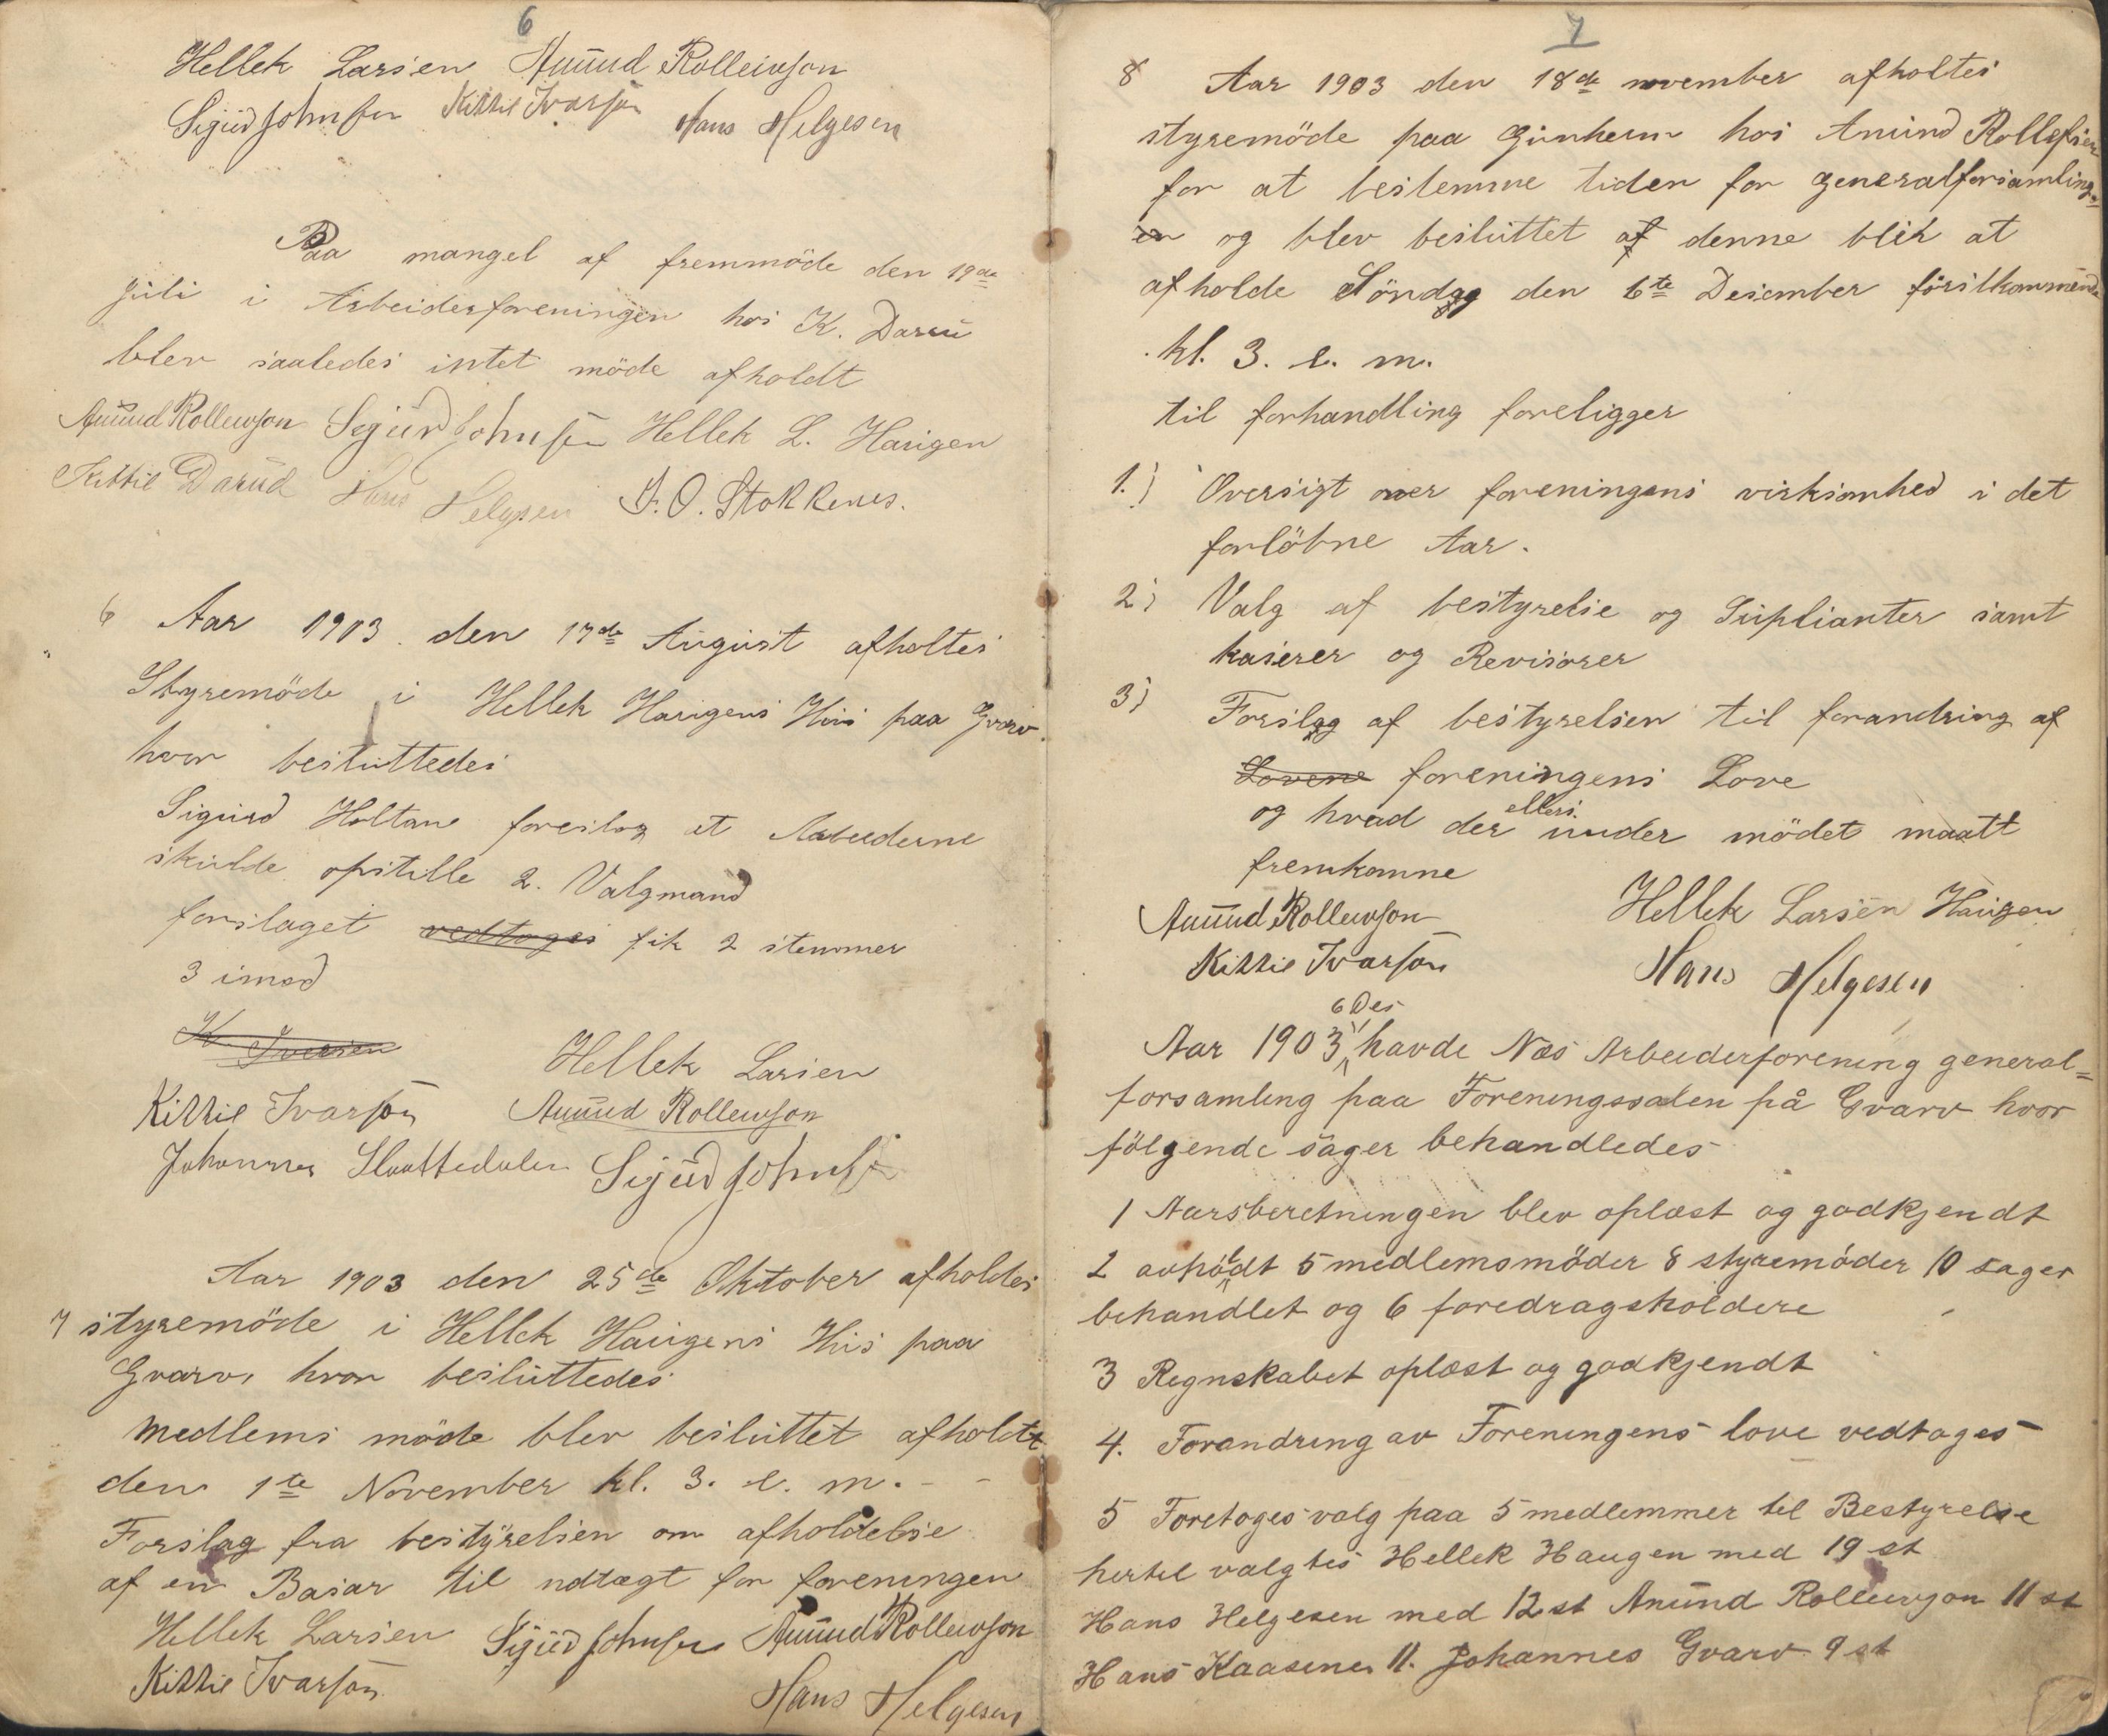 6
Hellek Larsen Amund Rolleivson
Sigurd Johnsen Kittil Ivarson Hans Helgesen
Paa mangel af fremmöde den 19de
Juli i Arbeiderforeningen hos K. Darud
blev saaledes intet möde afholdt
Amund Rolleivson Sigurd Johnsen Hellek L. Haugen
Kittil Darud Hans Helgesen J. O. Stokkenes.
6 Aar 1903. den 17de August afholtes
Styremöde i Hellek Haugens Hus paa Gvarv.
hvor besluttedes
Sigurd Holtane foreslog at Arbeiderne
skulde opstille 2. Valgmænd
forslaget vedtoges fik 2 stemmer
3 imod
K Iversen
Hellek Larsen
Kittil Ivarson Amund Rolleivson
Johannes Slaattedalen Sigurd Johnsen
Aar 1903 den 25de Oktober afholdes
7 styremöde i Hellek Haugens Hus paa
Gvarv, hvor besluttedes
Medlems möde blev besluttet afholdt
den 1te November kl. 3. e. m. - -
Forslag fra bestyrelsen om afholdelse
af en Basar til indtægt for foreningen
Hellek Larsen Sigurd Johnsen Amund Rolleivson
Kittil Ivarson Hans Helgesen
7
8 Aar 1903 den 18de november afholtes
styremöde paa Gunheim hos Amund Rollefsen
for at bestemme tiden for generalforsamling-
en og blev besluttet af denne blik at
afholde Söndag den 6te Desember förstkommende
kl. 3. e. m.
til forhandling foreligger
1.) Oversigt over foreningens virksomhed i det
forlöbne Aar.
2) Valg af bestyrelse og Suplianter samt
kaserer og Revisorer
3) Forslag af bestyrelsen til forandring af
Lovene foreningens Love
og hvad der ellers under mödet maatt
fremkomne
Amund Rolleivson Hellek Larsen Haugen
Kittil Ivarson Hans Helgesen
6 Des
Aar 1903 havde Nes Arbeiderforening general=
forsamling paa Foreningssalen på Gvarv hvor
fölgende sager behandledes
1 Aarsberetningen blev oplæst og godkjendt
2 avholdt 5 medlemsmöder 8 styremöder 10 sager
behandlet og 6 foredragsholdere
3 Regnskabet oplæst og godkjendt
4. Forandring av Foreningens love vedtages
5 Foretoges valg paa 5 medlemmer til Bestyrelse
hertil valgtes Hellek Haugen med 19 st
Hans Helgesen med 12 st Amund Rolleivson 11 st
Hans Kaasene 11. Johannes Gvarv 9 st